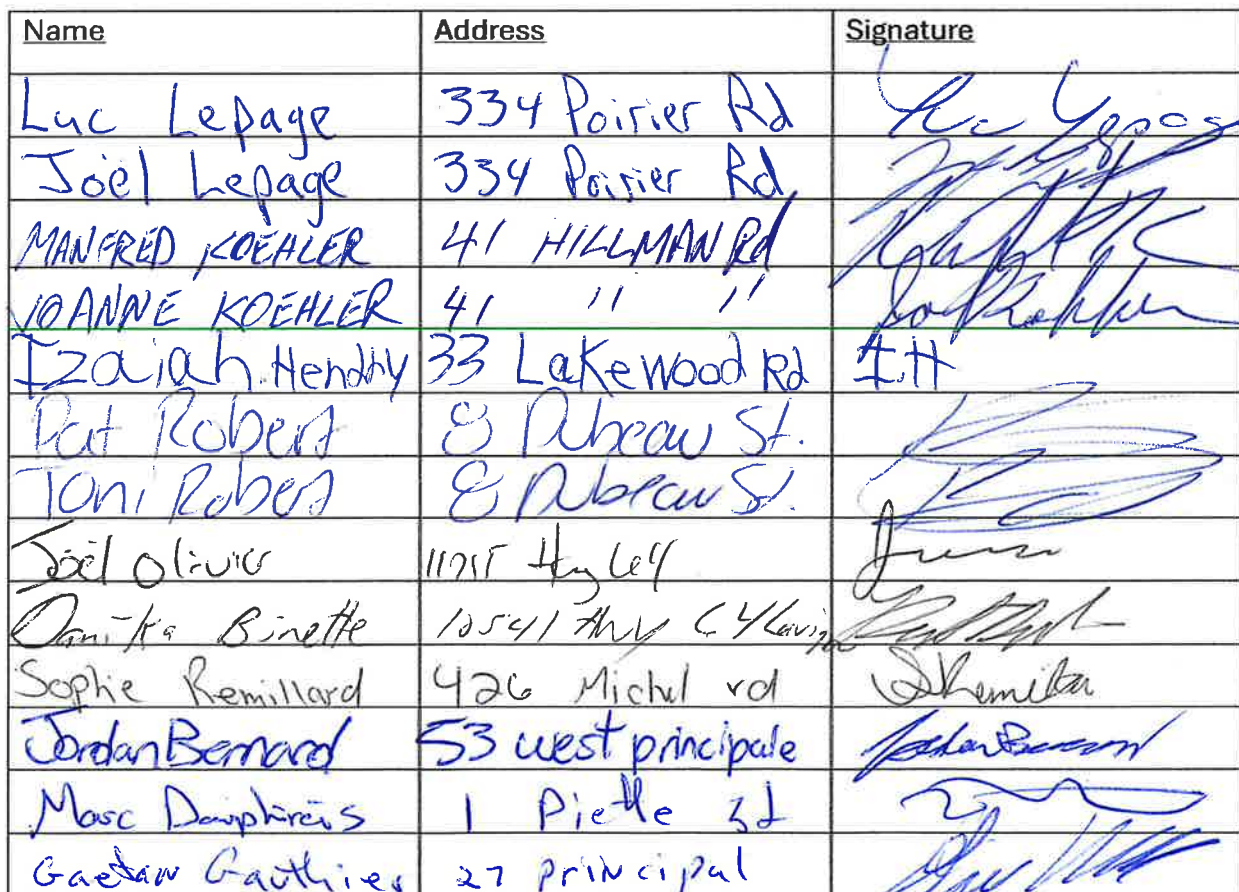 Name Address Signature
Luc Lepage 334 Poirier Rd Luc Lepage
Joël Lepage 334 Poirier Rd
MANFRED KOEHLER 41 HILLMAN Rd
JOANNE KOEHLER 41 " "
Izaiah Hendry 33 Lakewood Rd I.H
Pat Robert 8 Dubeau St.
Toni Robert 8 Dubeau St.
Joël Olivier Hwy 64
Binette 10541 Hwy 64 Lavigne
Sophie Remillard 426 Michel rd
Jordan Bernard 53 west principale Jordan Bernard
Marc Dauphinais 1 Piette
Gaetan Gauthier 27 principal